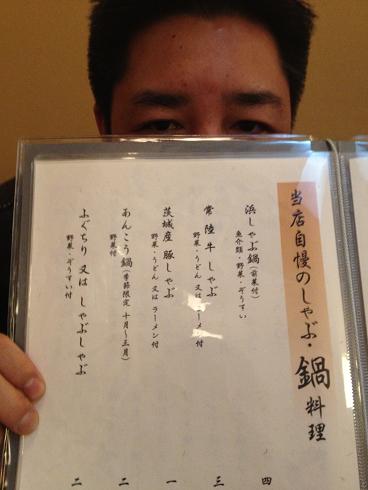 当店自慢のしゃぶ・鍋料理
浜しゃぶ鍋(前菜付)
魚介類・野菜・ぞうすい
四
常陸牛しゃぶ
野菜・うどん又はラーメン付
三
茨城産豚しゃぶ
野菜・うどん又はラーメン付
一
あんこう鍋(季節限定 十月~三月)
野菜付
二
ふぐちり又はしゃぶしゃぶ
野菜・ぞうすい付
二